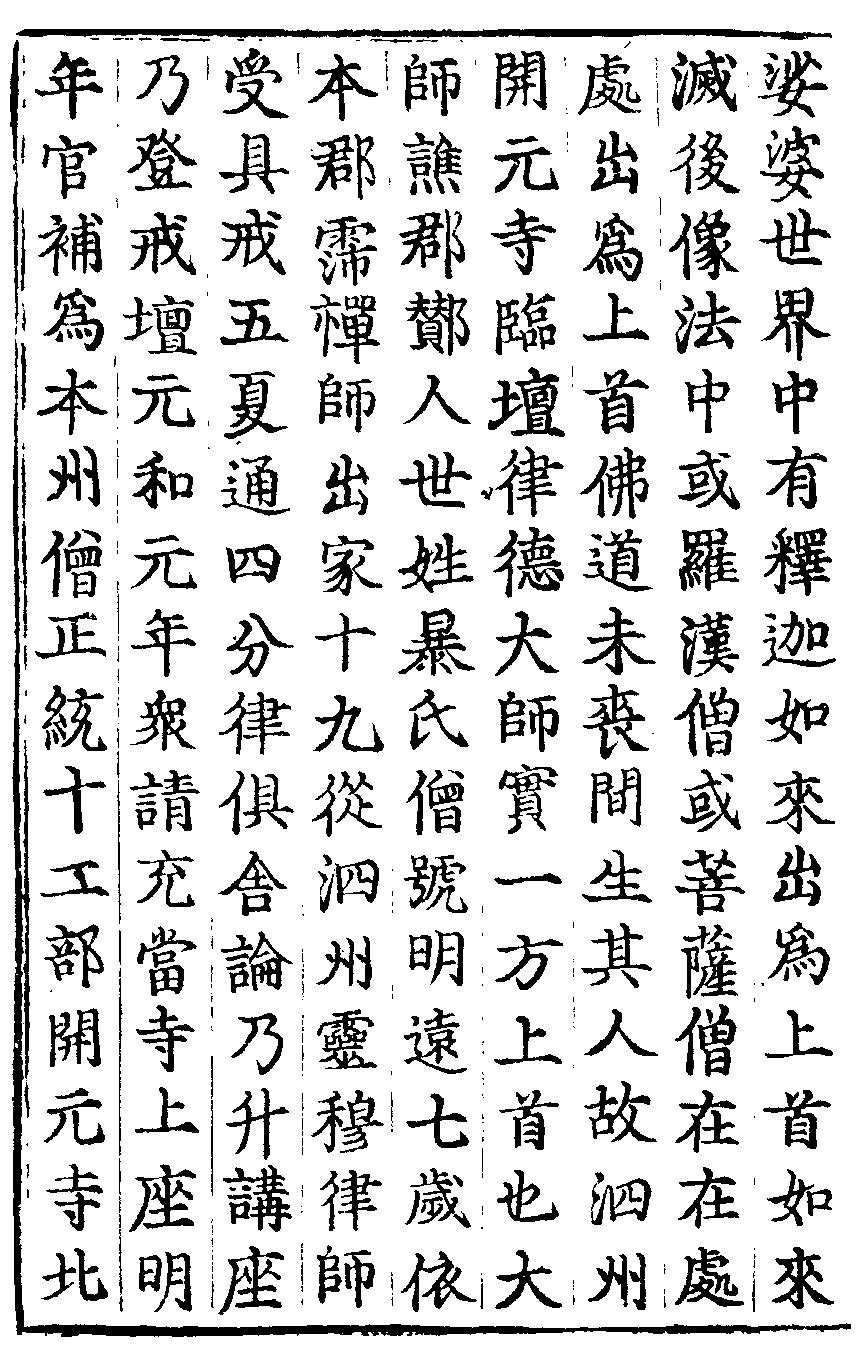 娑婆世界中有釋迦如來出爲上首如來
滅後像法中或羅漢僧或菩薩僧在在處
處出爲上首佛道未喪間生其人故泗州
開元寺臨壇律德大師實一方上首也大
師譙郡酇人世姓暴氏僧號明遠七歲依
本郡霈禪師出家十九從泗州靈穆律師
受具戒五夏通四分律俱舍論乃升講座
乃登戒壇元和元年衆請充當寺上座明
年官補爲本州僧正統十工部開元寺北